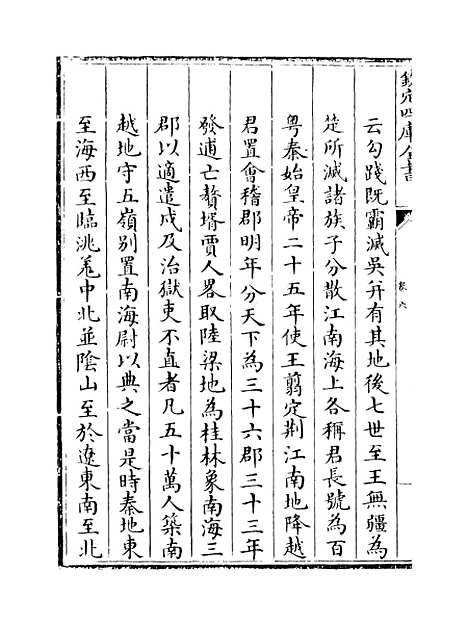 欽定四庫全書
卷六
云勾踐既霸滅吳并有其地後七世至王無疆為
楚所滅諸族子分散江南海上各稱君長號為百
粤秦始皇帝二十五年使王翦定荆江南地降越
君置會稽郡明年分天下為三十六郡三十三年
發逋亡贅壻賈人畧取陸梁地為桂林象南海三
郡以適遣戍及治獄吏不直者凡五十萬人築南
越地守五嶺別置南海尉以典之當是時秦地東
至海西至臨洮羗中北並陰山至於遼東南至北